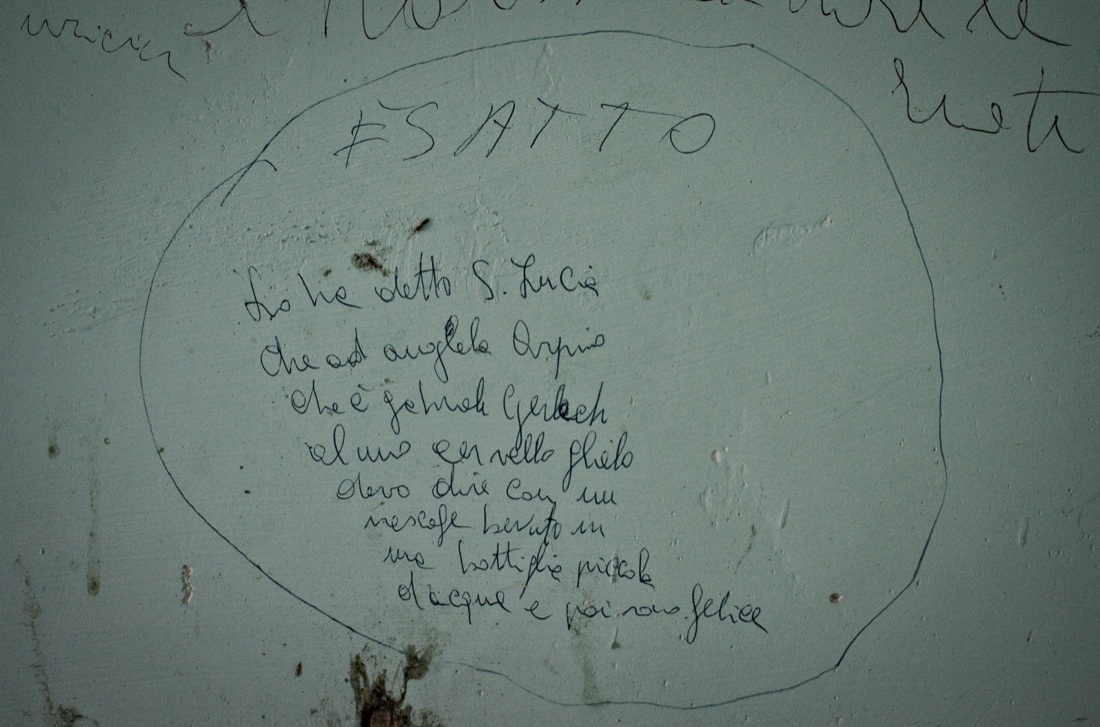 ESATTO
Lo ha detto S. Lucia
che ad angela Orpino
che è gabriele Gerlach
al mio cervello glielo
devo dire con un
nescafe bevuto in
una bottiglia piccola
d'acqua e poi sono felice